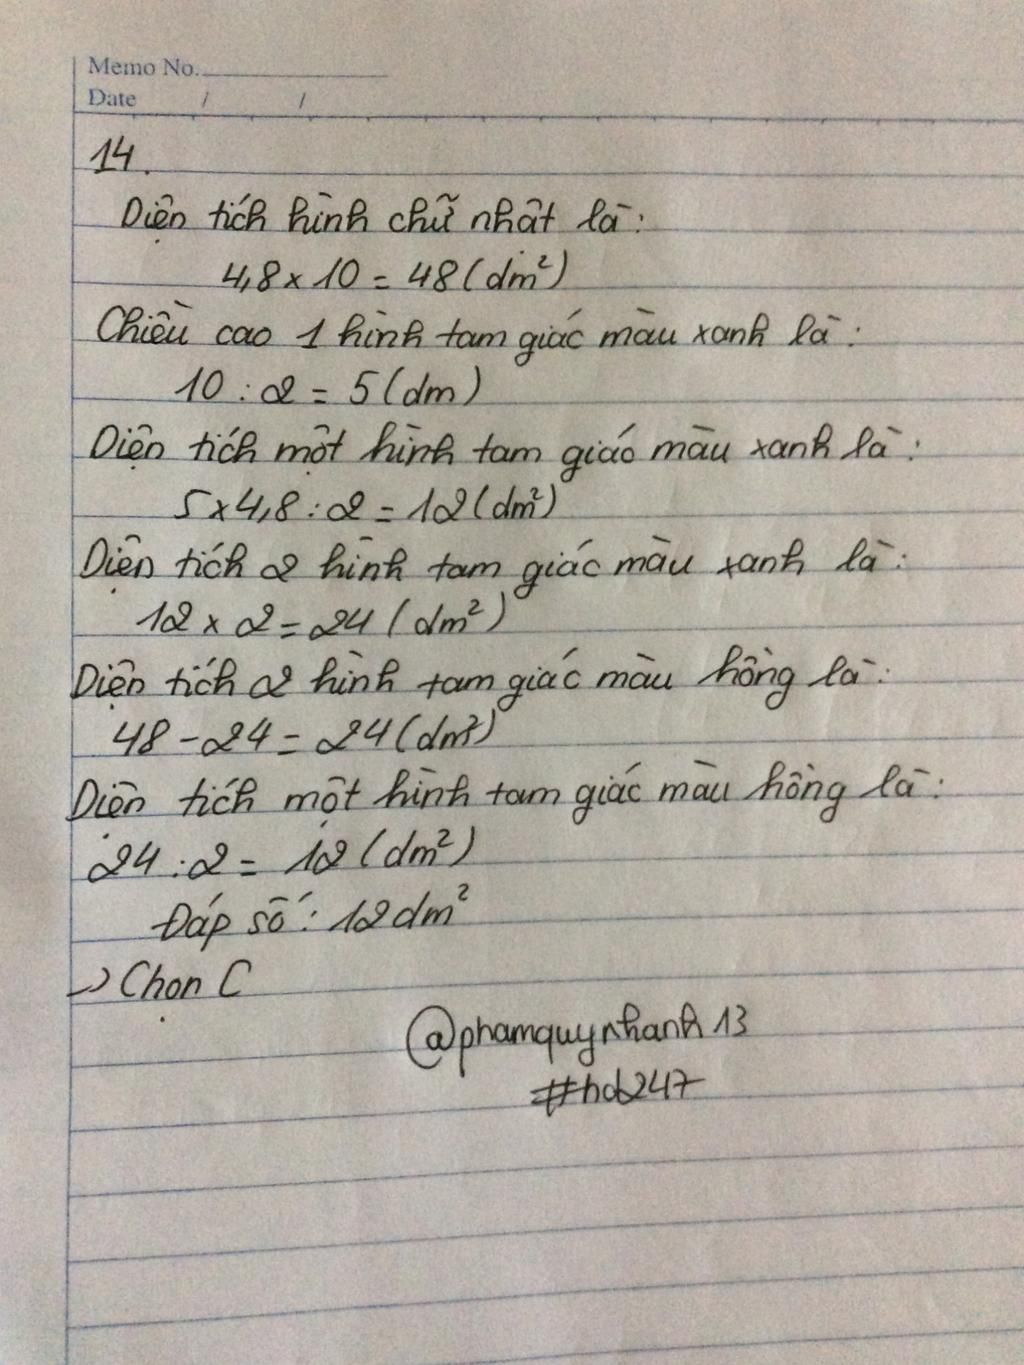 Memo No.
Date / /
14.
Diện tích hình chữ nhật là:
4,8 x 10 = 48 (dm²)
Chiều cao 1 hình tam giác màu xanh là:
10 : 2 = 5 (dm)
Diện tích một hình tam giác màu xanh là:
5 x 4,8 : 2 = 12 (dm²)
Diện tích 2 hình tam giác màu xanh là:
12 x 2 = 24 (dm²)
Diện tích 2 hình tam giác màu hồng là:
48 - 24 = 24 (dm²)
Diện tích một hình tam giác màu hồng là:
24 : 2 = 12 (dm²)
Đáp số: 12 dm²
-> Chọn C
@phamquynhanh13
#hoc247